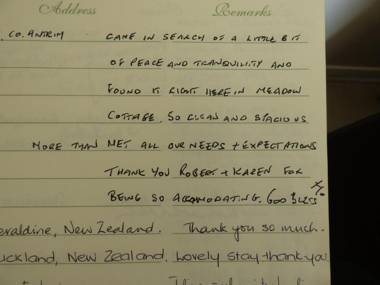 Address Remarks
CO. ANTRIM CAME IN SEARCH OF A LITTLE BIT
OF PEACE AND TRANQUILITY AND
FOUND IT RIGHT HERE IN MEADOW
COTTAGE. SO CLEAN AND SPACIOUS
MORE THAN MET ALL OUR NEEDS + EXPECTATIONS
THANK YOU ROBERT + KAREN FOR
BEING SO ACCOMODATING. GOD BLESS
eraldine, New Zealand. Thank you so much.
uckland, New Zealand. Lovely stay-thank you